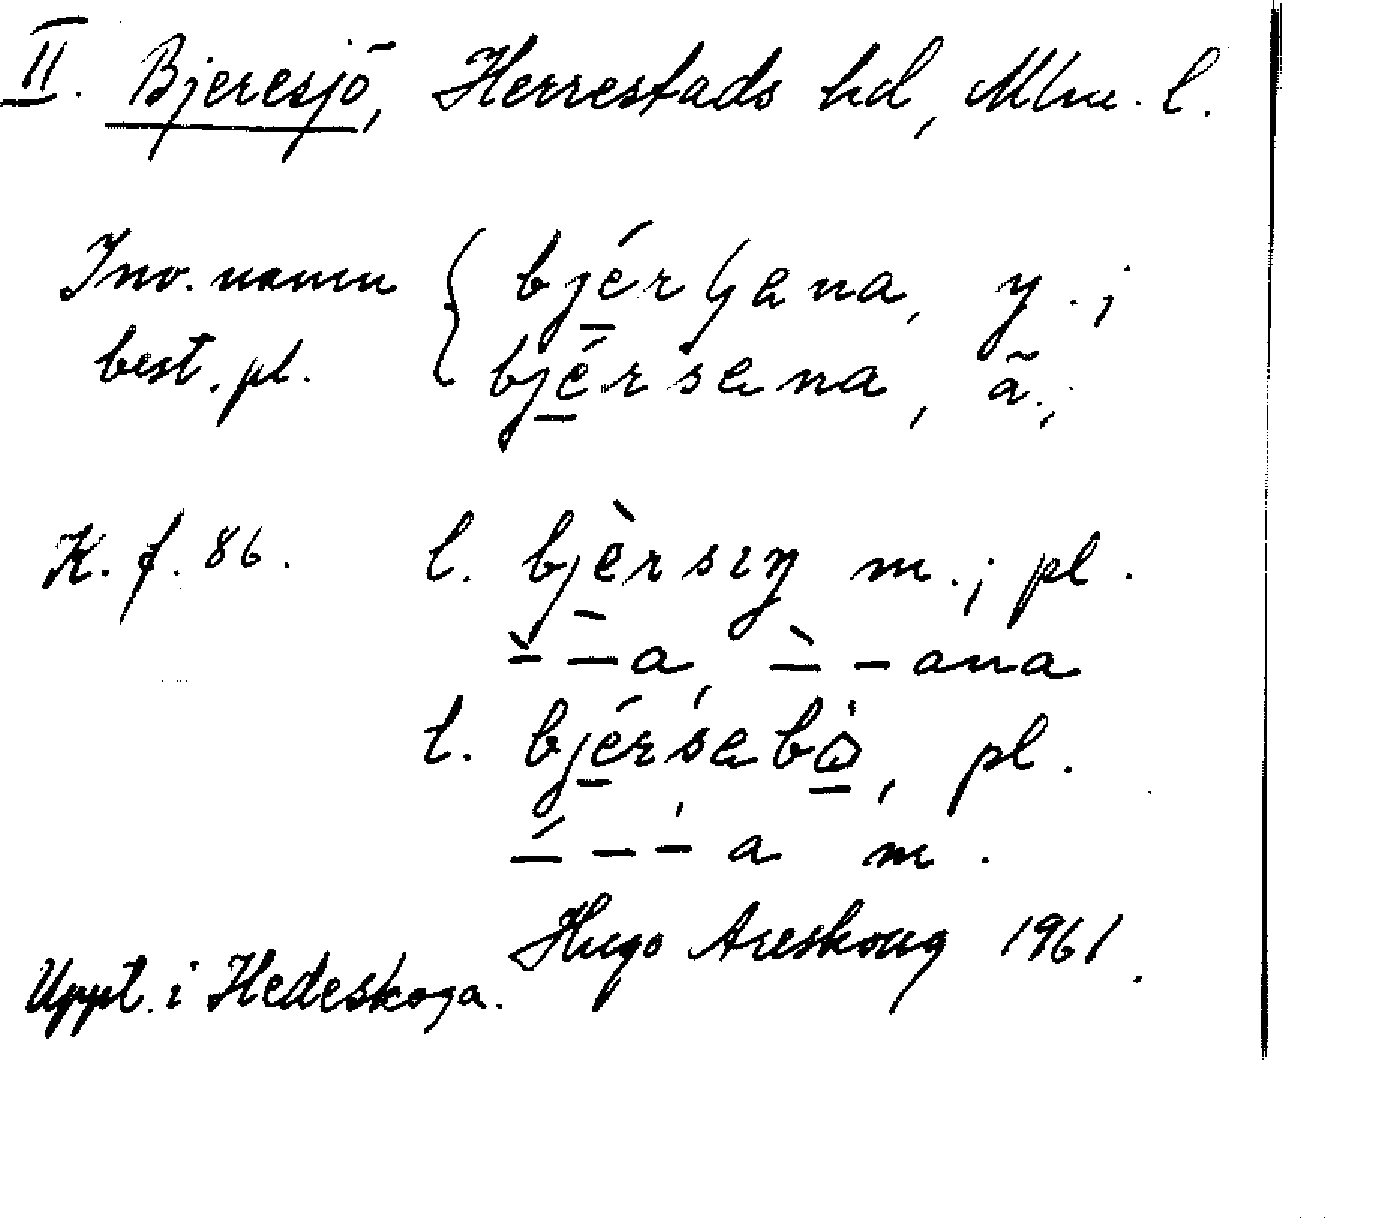 II. Bjeresjö, Herrestads hd, Mlm. l.
Inv. namn { bjérʃana, y. ;
best. pl. bjérsana, ä. ;
K. f. 86. l. bjèrsiŋ m. ; pl.
`– –a, `– –ana
l. bjérsabo, pl.
´– – –a m.
Hugo Areskoug 1961.
Uppt. i Hedeskoga.